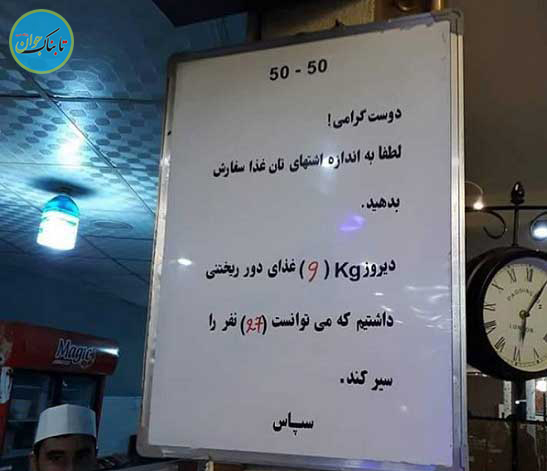 تابناک جوان
50 - 50
دوست گرامی!
لطفا به اندازه اشتهای تان غذا سفارش
بدهید.
دیروز Kg (9) غذای دور ریختنی
داشتیم که می توانست (27) نفر را
سیر کند.
سپاس
Magic
PADDINGTON
LONDON